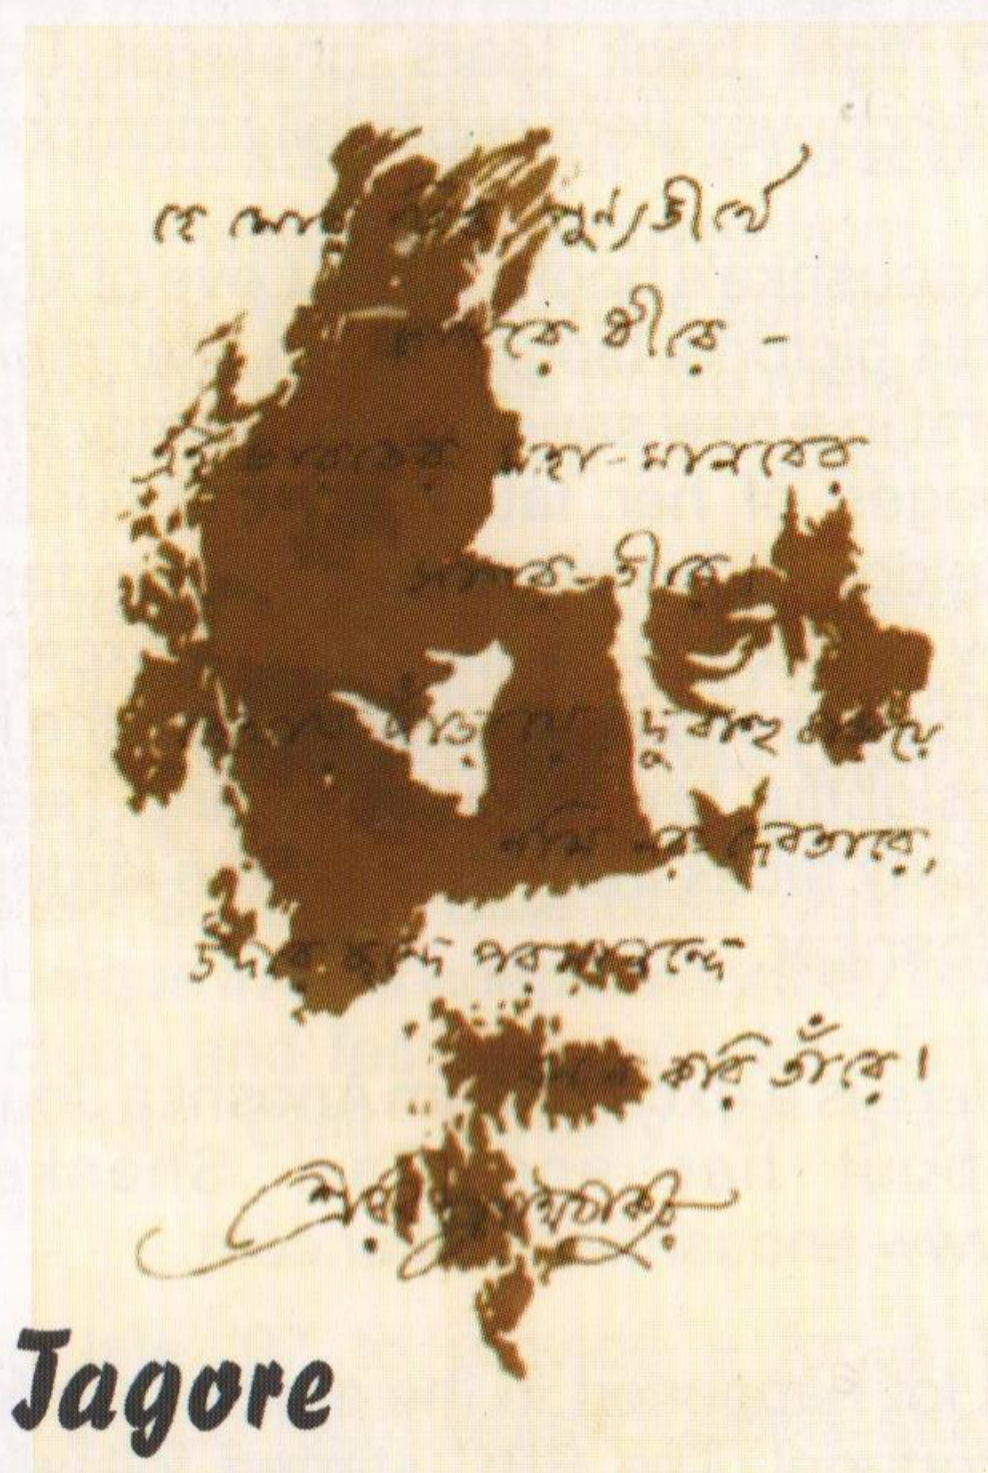 হে মোর পুণ্যতীর্থে
রে ধীরে -
এই ভারতের মহা-মানবের
সাগর-তীরে।
দাঁড়ায়ে দুবাহু বাড়ায়ে
নমি নর দেবতারে,
উদার ছন্দে পরমানন্দে
করি তাঁরে।
শ্রীরবীন্দ্রনাথ ঠাকুর
Tagore